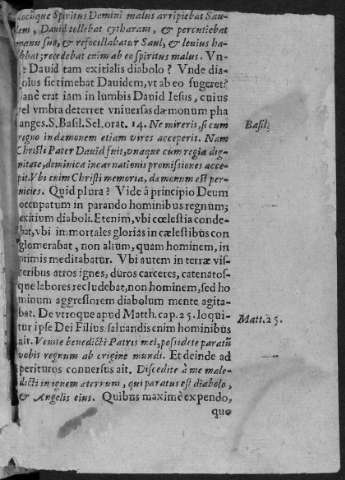 que Spiritus Domini malus arripiebat Sau-
lem, Dauid tollebat cytharam, & percutiebat
manu sua, & refocillabatur Saul, & leuius ha-
bebat; recedebat enim ab eo spiritus malus. Vn-
de Dauid tam exitialis diabolo? Vnde dia-
bolus sic timebat Dauidem, vt ab eo fugeret?
Sanè erat iam in lumbis Dauid Iesus, cuius
vel vmbra deterret vniuersas dæmonum pha
langes. S. Basil. Sel. orat. 14. Ne mireris, si cum
regno in dæmonem etiam vires acceperit. Nam
Christi Pater Dauid fuit, vnaque cùm regia dig-
nitate, dominica incarnationis promissiones acce-
pit. Vbi enim Christi memoria, dæmonum est per-
nicies. Quid plura? Vide à principio Deum
occupatum in parando hominibus regnum;
exitium diaboli. Etenim, vbi cœlestia conde-
bat, vbi immortales glorias in cælestibus con
glomerabat, non alium, quam hominem, in
primis meditabatur. Vbi autem in terræ vis-
ceribus atros ignes, duros carceres, catenatos-
que labores recludebat, non hominem, sed ho
minum aggressorem diabolum mente agita-
bat. De vtroque apud Matth. cap. 25. loqui-
tur ipse Dei Filius, saluandis enim hominibus
ait. Venite benedicti Patris mei, possidete paratũ
vobis regnum ab origine mundi. Et deinde ad
perituros conuersus ait. Discedite à me male-
dicti in ignem æternum, qui paratus est diabolo,
& Angelis eius. Quibus maximè expendo,
quo
Basil.
Matt. 25.